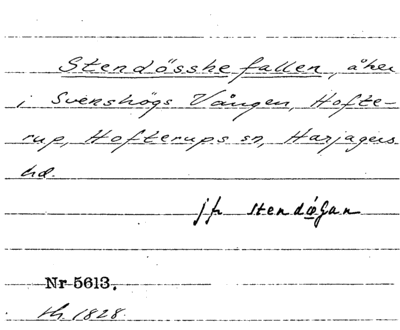 Stendösshe fallen, åker
i Svenshögs Vången, Hofte-
rup, Hofterups sn, Harjagers
hd.
jfr stendösan
Nr 5613.
1828